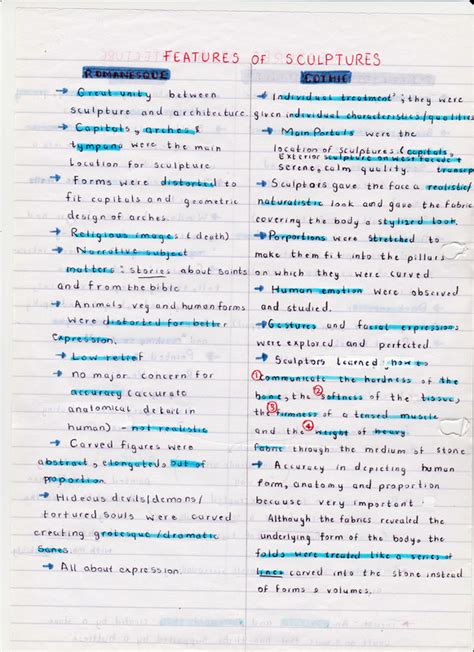 FEATURES OF SCULPTURES
ROMANESQUE
→ Great unity between
sculpture and architecture.
→ Capitals, arches &
tympano were the main
location for sculpture
→ forms were distorted to
fit capitals and geometric
design of arches.
→ Religious images (death)
→ Narrative subject
matters: stories about saints
and from the bible
→ Animals veg and human forms
were distorted for better
expression.
→ Low relief
→ no major concern for
accuracy (accurate
anatomical detail in
human) - not realistic
→ Carved figures were
abstract, elongated, out of
proportion
→ Hideous devils/demons/
tortured souls were carved
creating grotesque/dramatic
→ All about expression.
GOTHIC
→ Individual treatment; they were
given individual characteristics/qualities
→ Main Portals were the
location of sculptures (capitals,
Exterior sculpture on west facade +
serene, calm quality.
→ Sculptors gave the face a realistic/
naturalistic look and gave the fabric
covering the body a stylized look.
→ Porportions were stretched to
make them fit into the pillars
on which they were carved
→ Human emotion were observed
and studied.
→ Gestures and facial expressions
were explored and perfected
→ Sculptors learned how to
① communicate the hardness of the
bone, the ② softness of the tissue,
the ③ firmness of a tensed muscle
and the ④ weight of heavy
fabric through the medium of stone
→ Accuracy in depicting human
form, anatomy and proportion
because very important
Although the fabrics revealed the
underlying form of the body, the
folds were treated like a series of
lines carved into the stone instead
of forms & volumes.